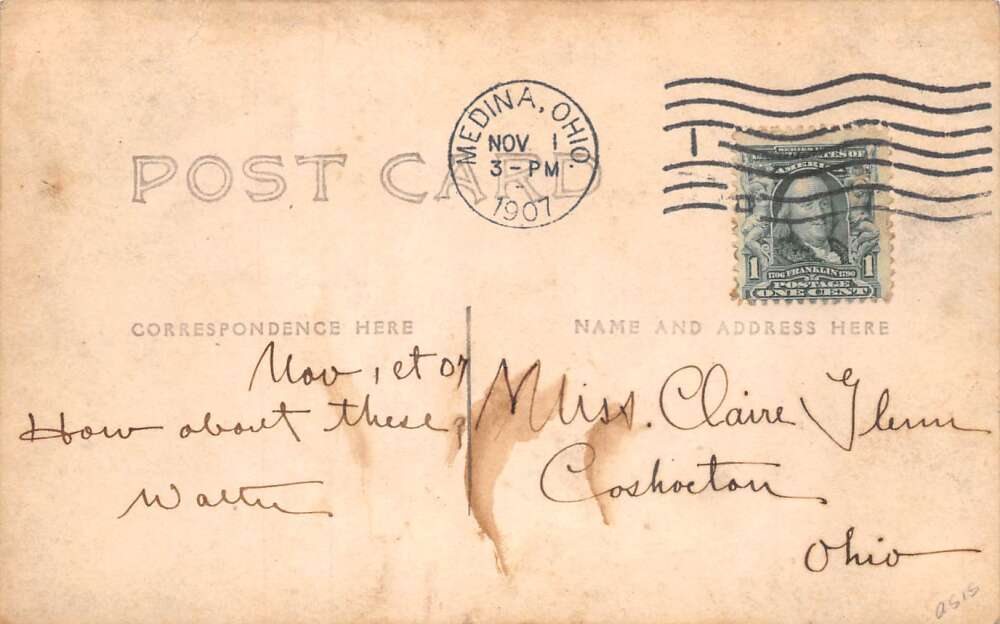 POST CARD
MEDINA, OHIO
NOV 1
3 - PM
1907
1
AMERICA
1 1
1706 FRANKLIN 1790
POSTAGE
ONE CENT
CORRESPONDENCE HERE
NAME AND ADDRESS HERE
Nov, 1st 07
How about these?
Walter
Miss. Claire Glenn
Coshocton
Ohio
asis